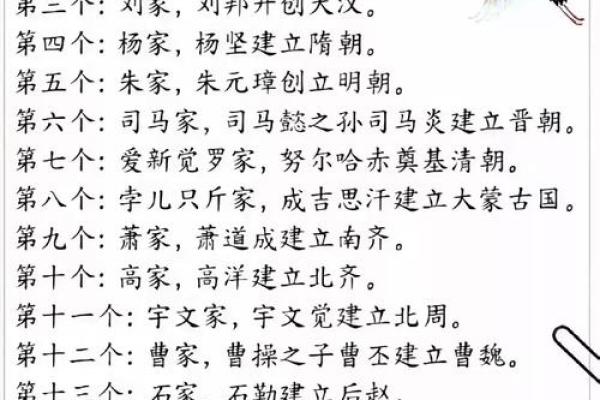 第三个：刘家，刘邦开创大汉。
第四个：杨家，杨坚建立隋朝。
第五个：朱家，朱元璋创立明朝。
第六个：司马家，司马懿之孙司马炎建立晋朝。
第七个：爱新觉罗家，努尔哈赤奠基清朝。
第八个：孛儿只斤家，成吉思汗建立大蒙古国。
第九个：萧家，萧道成建立南齐。
第十个：高家，高洋建立北齐。
第十一个：宇文家，宇文觉建立北周。
第十二个：曹家，曹操之子曹丕建立曹魏。
第十三个：石家，石勒建立后赵。